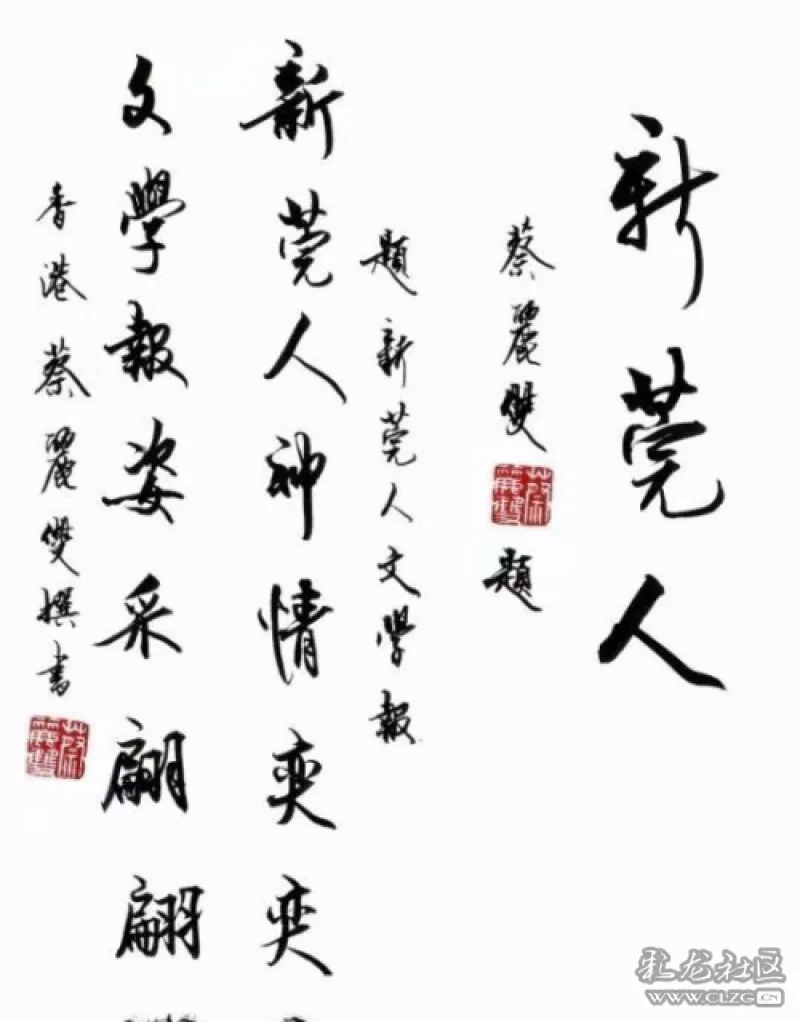 新莞人
蔡麗雙
蔡麗雙
題
題新莞人文學報
新莞人神情奕奕
文學報姿采翩翩
香港蔡麗雙撰書
蔡麗雙
乳龙社区
WWW.CLZG.CN